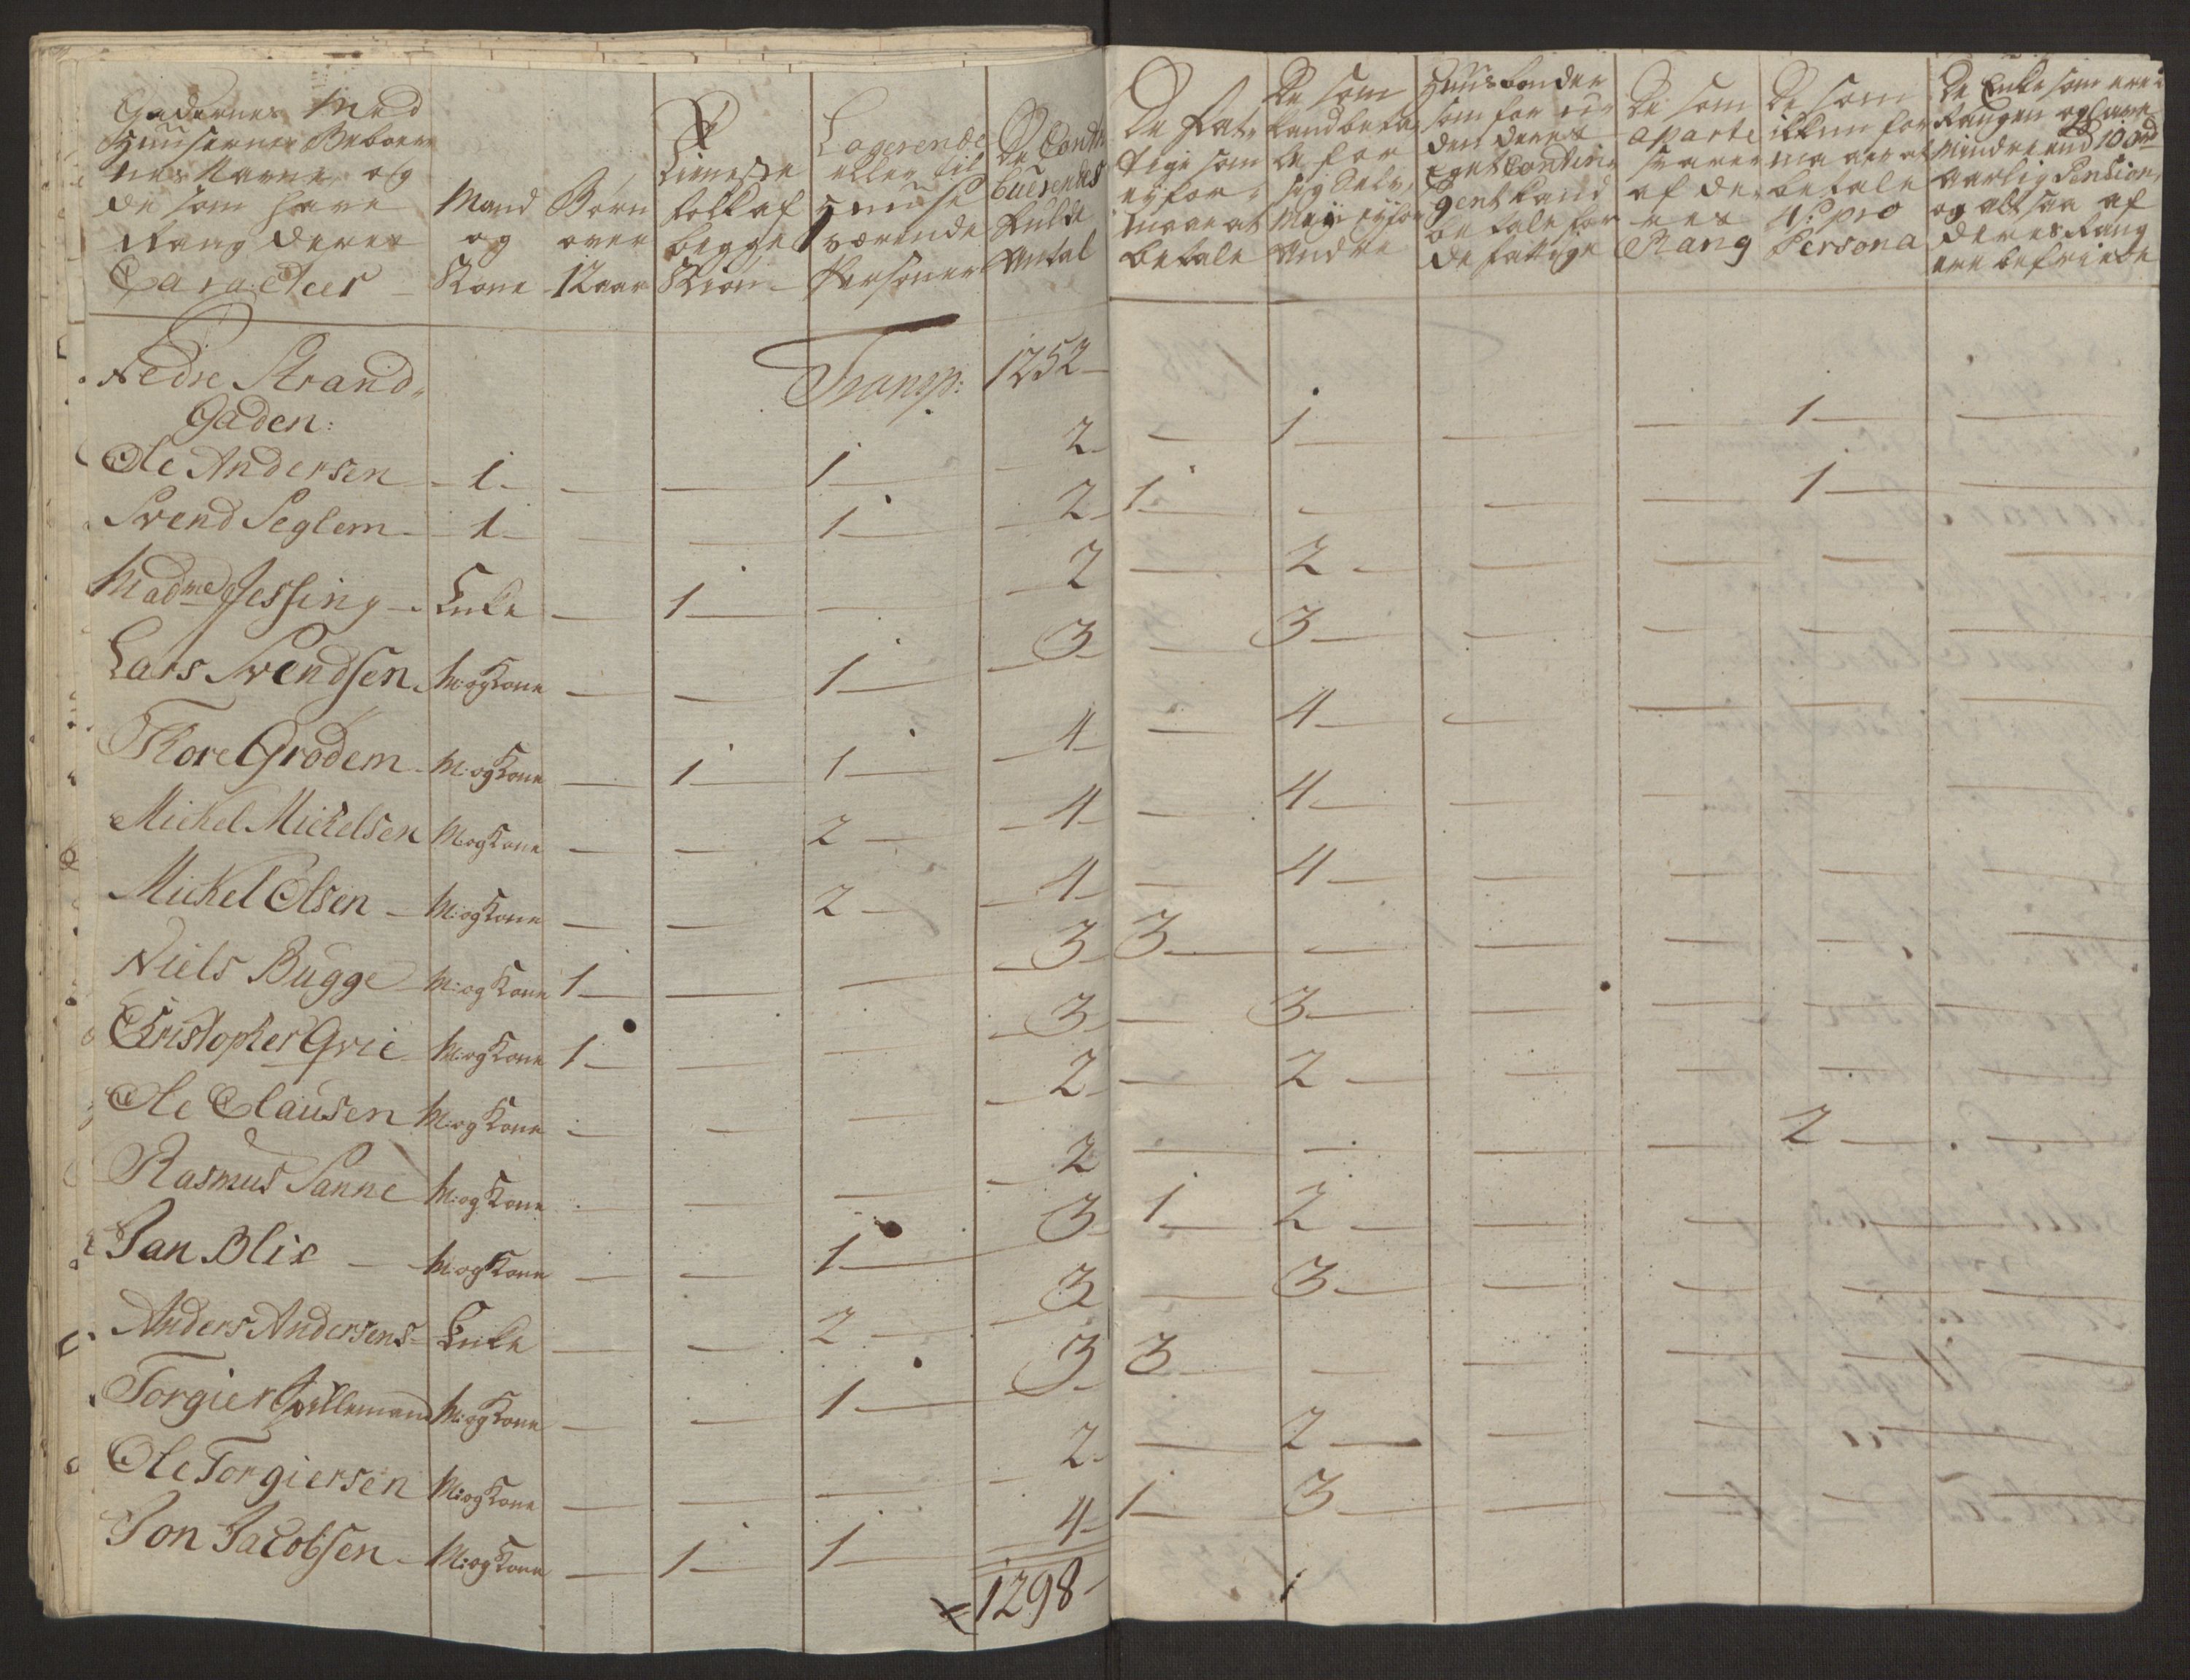 Gadernes Med
Huuserne Beboer
nes Navne og
de som have
Rang deres
Caracteer
Mand
og
Kone
Børn
over
12 aar
Tieneste
folk af
begge
Kiøn
Logerende
eller til
Huuse
værende
Personer
De Contri
buerendes
Fulde
Antal
De Fat-
tige som
ey for-
maae at
betale
De som
kand beta-
le for
sig Selv,
Men ey for
Andre
Huusbonder
som for u-
den deres
eget Contin-
gent kand
betale for
de fattige
De som
aparte
svarer
af de-
res
Rang
De som
ikkun for
maaer at
betale
4 s pro
Persona
De Enker som ere i
Rangen og have
Mindre end 100 rd
aarlig Pension
og altsaa af
deres Rang
ere befriede
Nedre Strand- Transp: 1252 —
Gaden:
Ole Andersen — 1 — — — 1 — 2 — — 1 — — — 1 — —
Svend Seglem — 1 — — — 1 — 2 — 1 — — — — 1 — —
Madme Jessing — Enke — 1 — — 2 — 2 — — — — —
Lars Svendsen M: og Kone — — 1 — 3 — 3 — — — — —
Thore Grødem M: og Kone — 1 — 1 — 4 — — 4 — — — — —
Mickel Mickelsen M: og Kone — — 2 — 4 — — 4 — — — — —
Mickel Olsen — M: og Kone — — 2 — 4 — — 4 — — — — —
Niels Bugge M: og Kone 1 — — — 3 — 3 — — — — — —
Christopher Grie M: og Kone 1 — — — 3 — — 3 — — — — —
Ole Clausen M: og Kone — — — 2 — — 2 — — — — —
Rasmus Sanne M: og Kone — — — 2 — — — — 2 — —
Jan Blix — M: og Kone — — 1 — 3 — 1 — 2 — — — — —
Anders Andersens Enke — — 2 — 3 — 3 — — — — —
Torgier M: og Kone — — 1 — 3 — 3 — — — — — —
Ole Torgiersen M: og Kone — — — 2 — — 2 — — — — —
Jon Jacobsen — M: og Kone — 1 — 1 — 4 — 1 — 3 — — — — —
1298 —